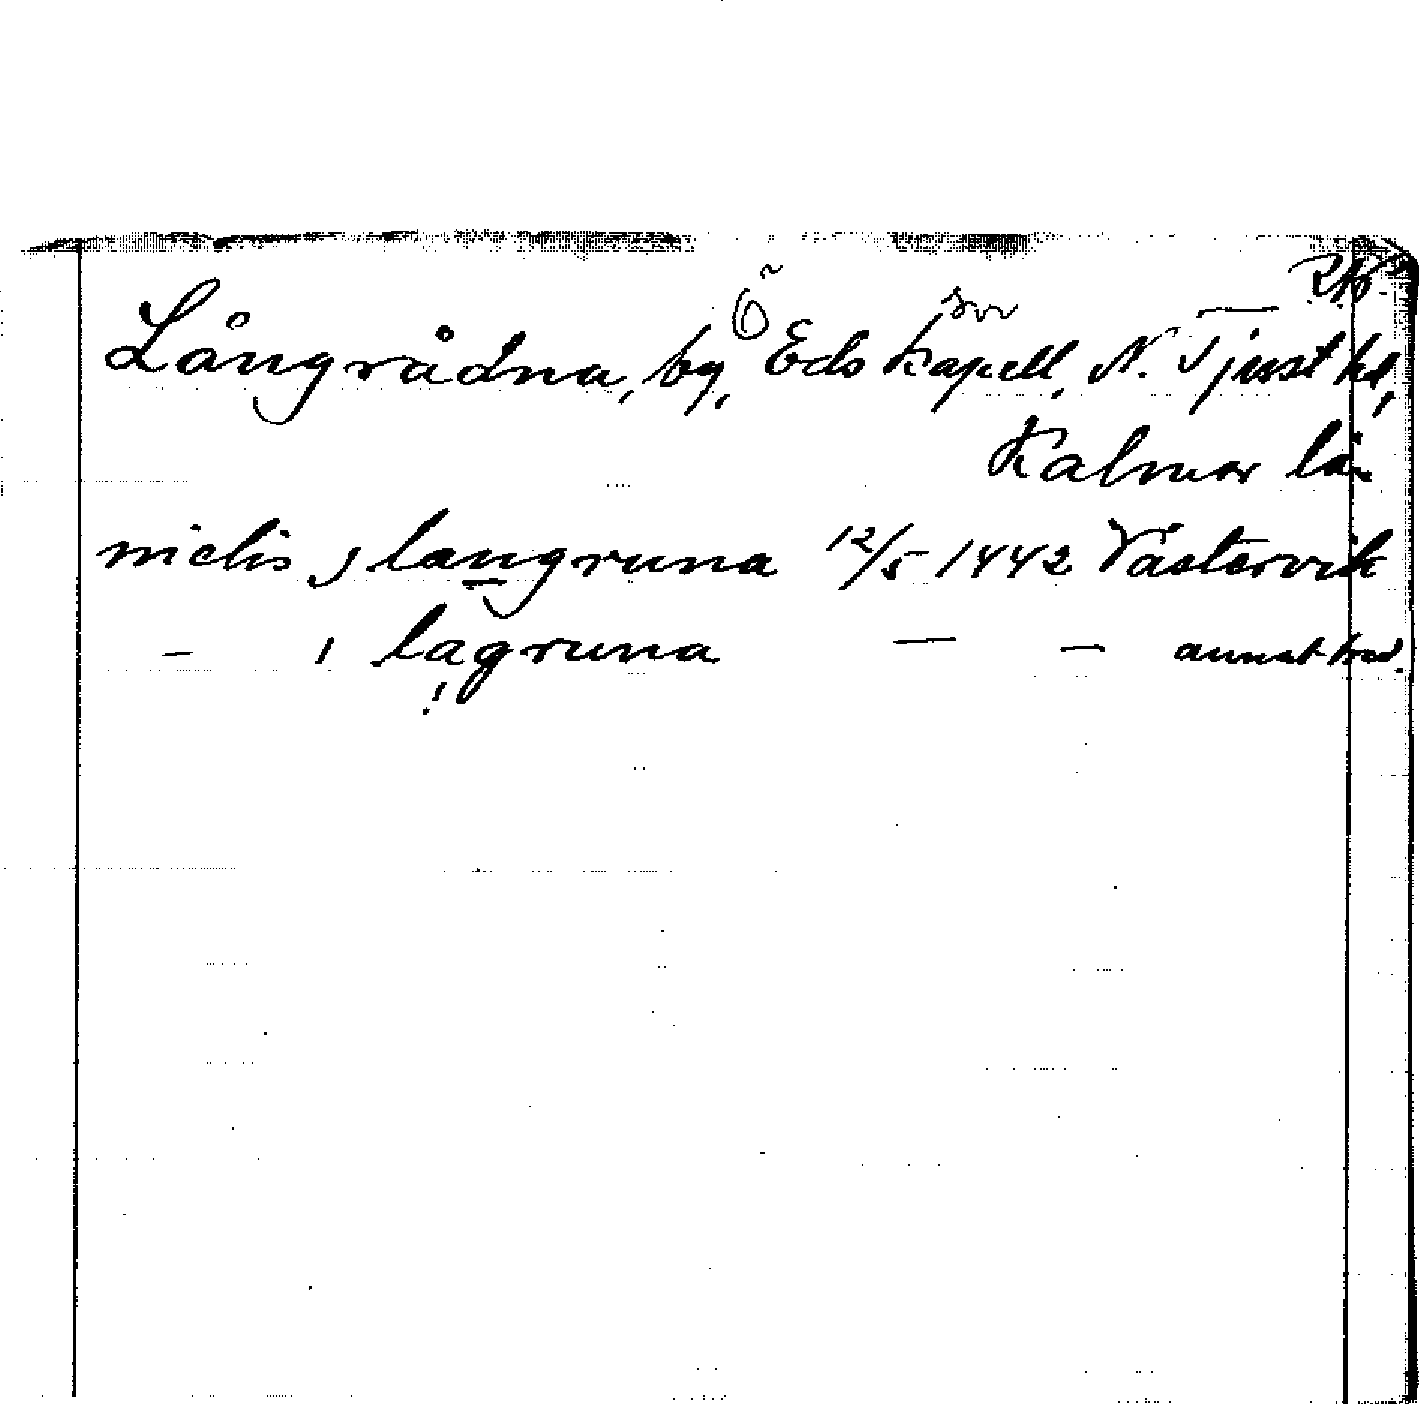 Långrådna, by, Ö Eds kapell, N. Tjust hd,
Kalmar län
niclis j langruna 12/5 1442 Västervik
— i lagruna — — annat bref.
!